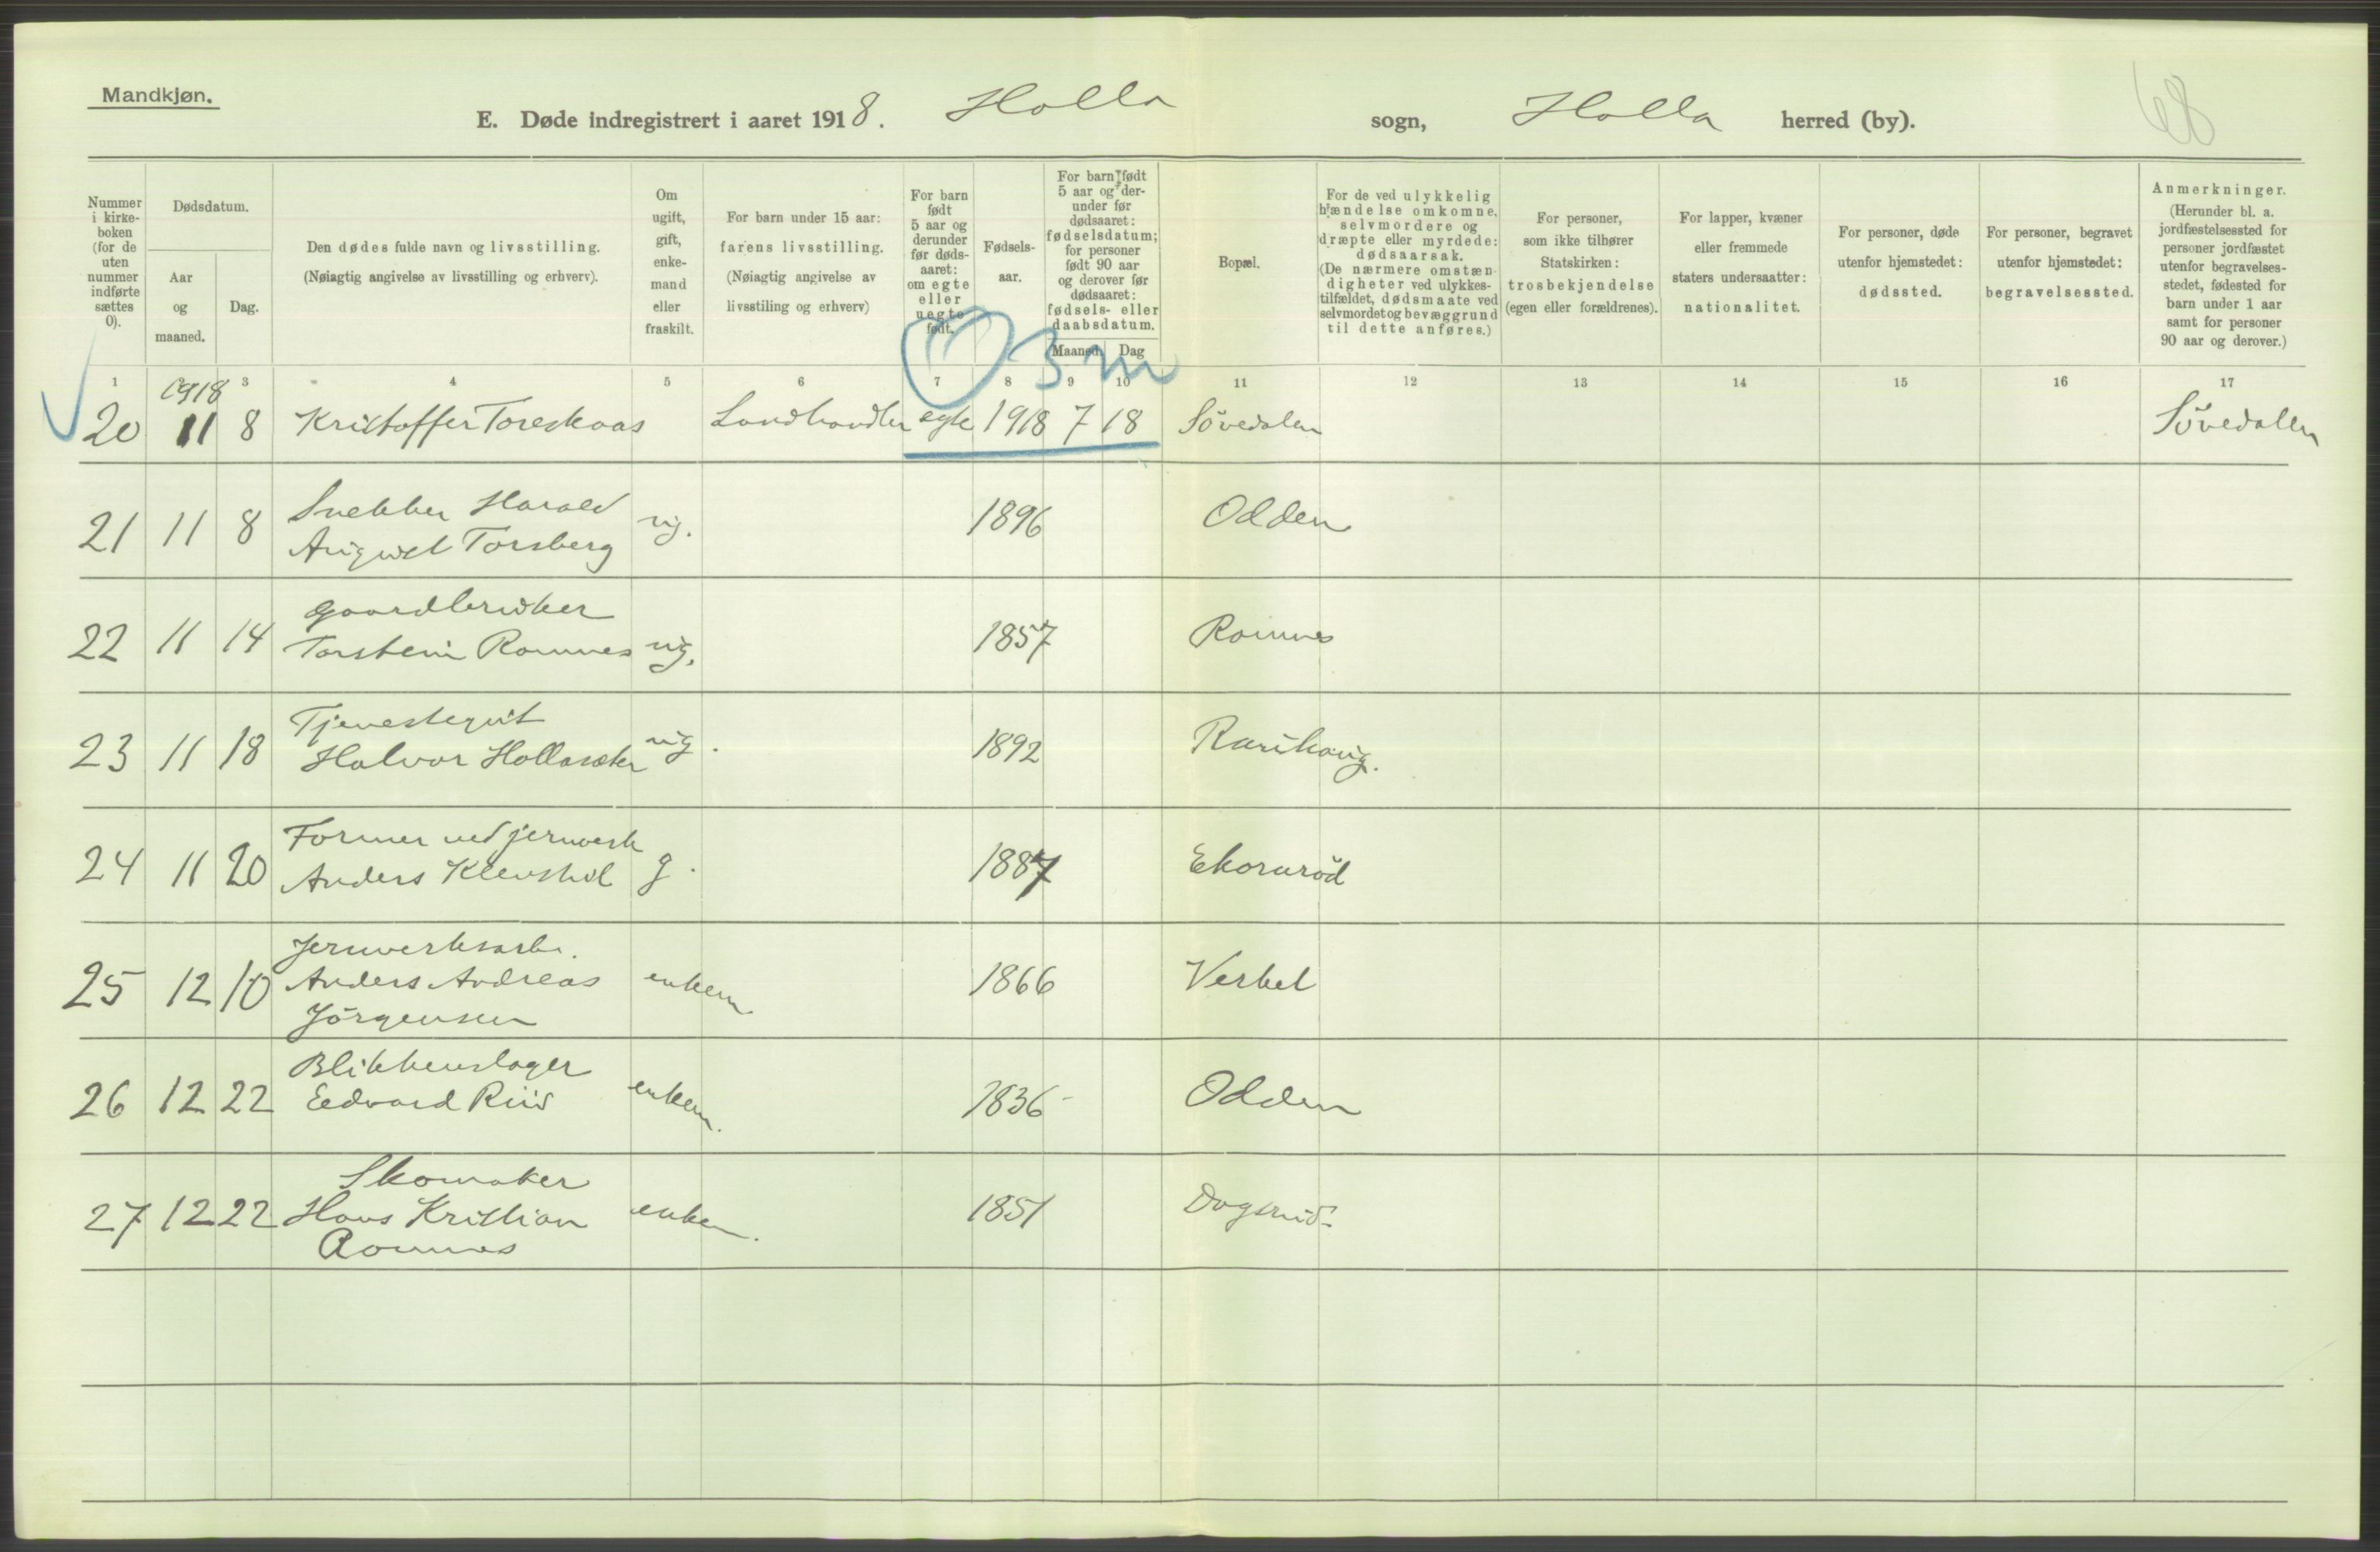 Mandkjøn.
E. Døde indregistrert i aaret 1918. Holla sogn, Holla herred (by).
68
Nummer i kirke-boken (for de uten nummer indførte sættes 0).
Dødsdatum.
Aar og maaned.
Dag.
Den dødes fulde navn og livsstilling.
(Nøiagtig angivelse av livsstilling og erhverv).
Om ugift, gift, enke-mand eller fraskilt.
For barn under 15 aar: farens livsstilling.
(Nøiagtig angivelse av livsstiling og erhverv)
For barn født 5 aar og derunder før døds-aaret: om egte eller uegte født.
Fødsels-aar.
For barn født 5 aar og der-under før dødsaaret: fødselsdatum; for personer født 90 aar og derover før dødsaaret: fødsels- eller daabsdatum.
Maaned. Dag
Bopæl.
For de ved ulykkelig hændelse omkomne, selvmordere og dræpte eller myrdede: dødsaarsak.
(De nærmere omstæn-digheter ved ulykkes-tilfældet, dødsmaate ved selvmordet og bevæggrund til dette anføres.)
For personer, som ikke tilhører Statskirken: trosbekjendelse (egen eller forældrenes).
For lapper, kvæner eller fremmede staters undersaatter: nationalitet.
For personer, døde utenfor hjemstedet: dødssted.
For personer, begravet utenfor hjemstedet: begravelsessted.
Anmerkninger.
(Herunder bl. a. jordfæstelsessted for personer jordfæstet utenfor begravelses-stedet, fødested for barn under 1 aar samt for personer 90 aar og derover.)
3 m
1 3 4 5 6 7 8 9 10 11 12 13 14 15 16 17
1918
20 11 8 Kristoffer Toreskaas Landhandler egte 1918 7 18 Sövedalen Sövedalen
21 11 8 Snekker Harald ug. 1896 Odden
August Torsberg
22 11 14 Gaardbruker
Torstein Romnes ug. 1857 Romnes
23 11 18 Tjenestegut
Halvor Hollasæter ug. 1892 Raukaug.
24 11 20 Former ved jernverk
Anders Klevshol g. 1887 Ekornröd
25 12 10 Jernverksarb.
Anders Andreas enkem. 1866 Verket
Jörgensen
26 12 22 Blikkenslager
Edvard Riis enkem. 1836 Odden
27 12 22 Skomaker
Hans Kristian enkem. 1851 Dagsrud.
Romnes